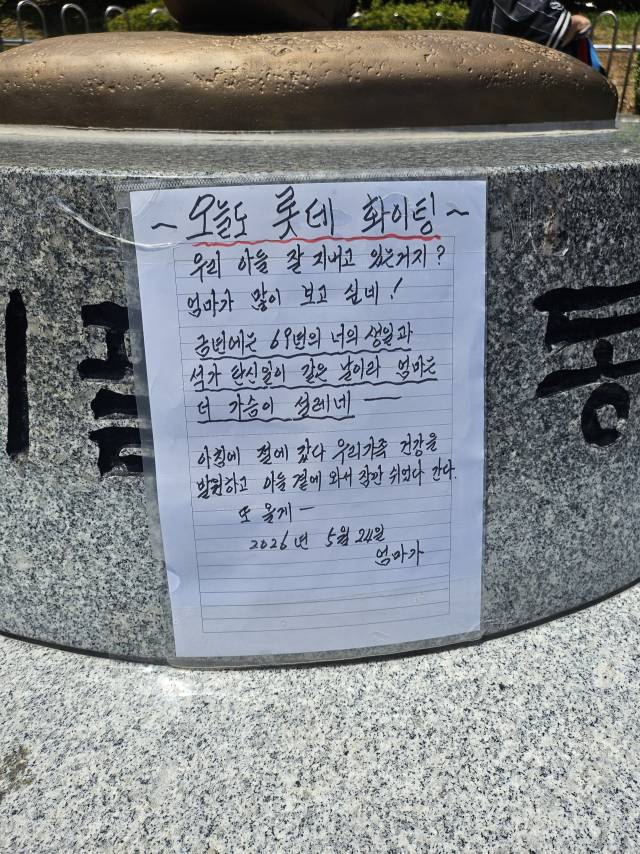 ~ 오늘도 롯데 화이팅 ~
우리 아들 잘 지내고 있는거지?
엄마가 많이 보고 싶네!
금년에는 69번의 너의 생일과
석가 탄신일이 같은 날이라 엄마는
더 가슴이 설레네 —
아침에 절에 갔다 우리가족 건강을
발원하고 아들 곁에 와서 잠깐 쉬었다 간다.
또 올게 —
2026년 5월 24일
엄마가
동